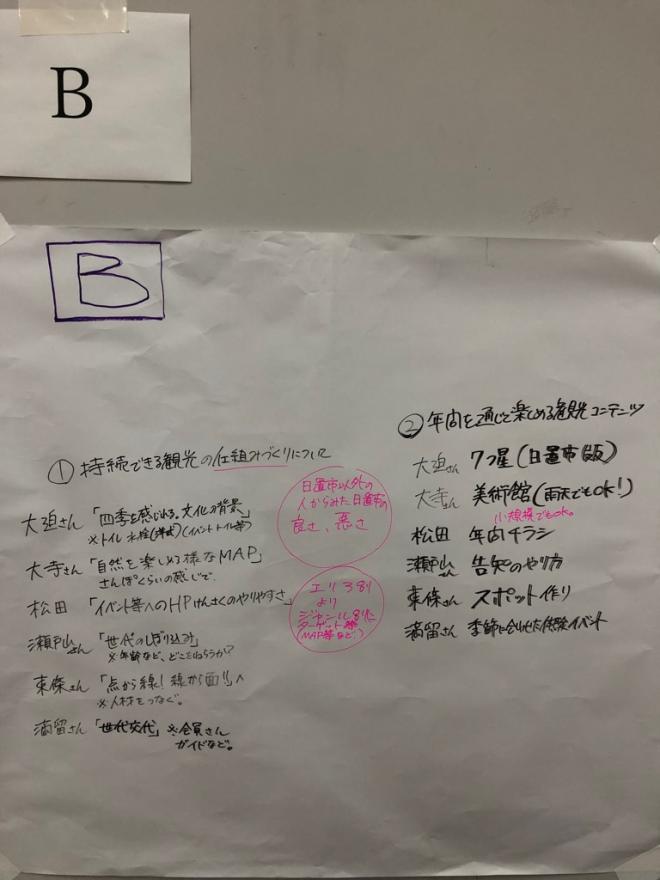 B
B
① 持続できる観光の仕組みづくりについて
大迫さん 「四季を感じれる。文化が背景」
※トイレ 水栓(洋式)(イベントトイレ等)
大寺さん 「自然を楽しめる様なMAP」
さんぽぐらいの感じで
松田 「イベント等へのHPけんさくのやりやすさ」
瀬戸山さん 「世代のしぼり込み」
※年齢など、どこをねらうか?
東條さん 「点から線!線から面!!」へ
※人材をつなぐ。
満留さん 「世代交代」 ※会員さん
ガイドなど。
日置市以外の
人からみた日置市の
良さ、悪さ
エリア別
より
ジャンル別に
ターゲット
(MAP等など)
② 年間を通じて楽しめる観光コンテンツ
大迫さん 7つ星(日置市版)
大寺さん 美術館(雨天でもOK!)
小規模でもOK。
松田 年間チラシ
瀬戸山さん 告知のやり方
東條さん スポット作り
満留さん 季節に合わせた体験イベント